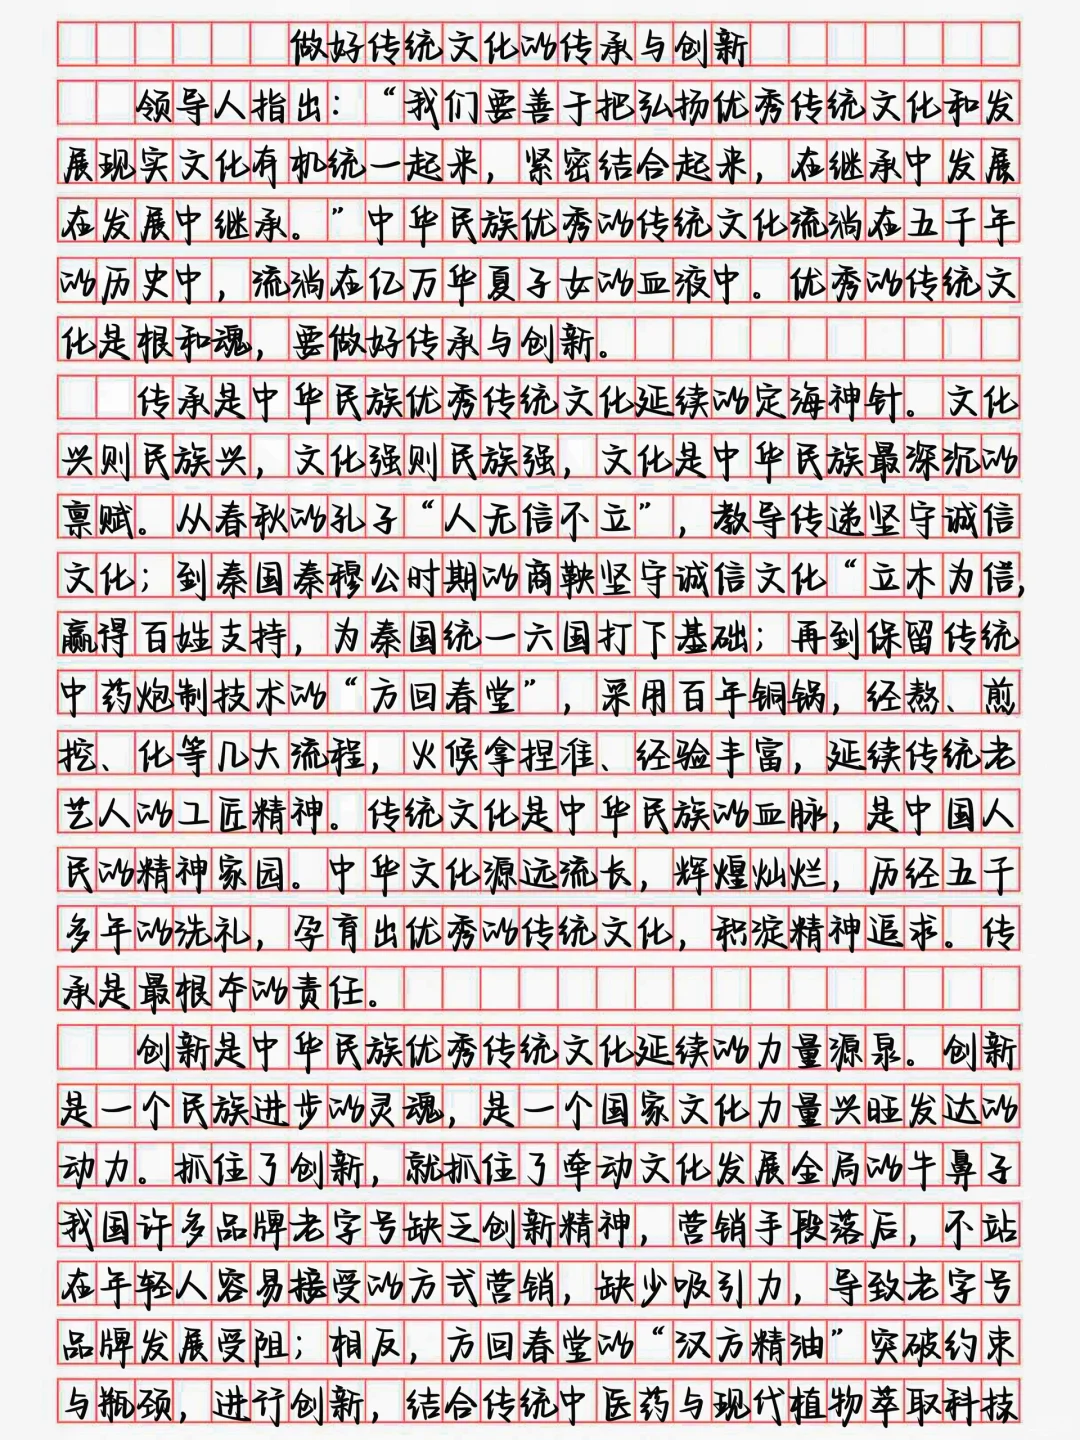 做好传统文化的传承与创新
领导人指出：“我们要善于把弘扬优秀传统文化和发
展现实文化有机统一起来，紧密结合起来，在继承中发展
在发展中继承。”中华民族优秀的传统文化流淌在五千年
的历史中，流淌在亿万华夏子女的血液中。优秀的传统文
化是根和魂，要做好传承与创新。
传承是中华民族优秀传统文化延续的定海神针。文化
兴则民族兴，文化强则民族强，文化是中华民族最深沉的
禀赋。从春秋的孔子“人无信不立”，教导传递坚守诚信
文化；到秦国秦穆公时期的商鞅坚守诚信文化“立木为信，
赢得百姓支持，为秦国统一六国打下基础；再到保留传统
中药炮制技术的“方回春堂”，采用百年铜锅，经熬、煎
挖、化等几大流程，火候拿捏准、经验丰富，延续传统老
艺人的工匠精神。传统文化是中华民族的血脉，是中国人
民的精神家园。中华文化源远流长，辉煌灿烂，历经五千
多年的洗礼，孕育出优秀的传统文化，积淀精神追求。传
承是最根本的责任。
创新是中华民族优秀传统文化延续的力量源泉。创新
是一个民族进步的灵魂，是一个国家文化力量兴旺发达的
动力。抓住了创新，就抓住了牵动文化发展全局的牛鼻子
我国许多品牌老字号缺乏创新精神，营销手段落后，不站
在年轻人容易接受的方式营销，缺少吸引力，导致老字号
品牌发展受阻；相反，方回春堂的“汉方精油”突破约束
与瓶颈，进行创新，结合传统中医药与现代植物萃取科技